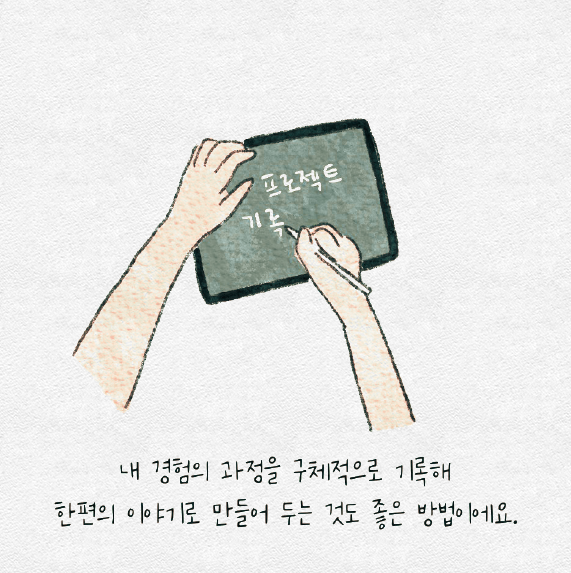 프로젝트
기록
내 경험의 과정을 구체적으로 기록해
한편의 이야기로 만들어 두는 것도 좋은 방법이에요.